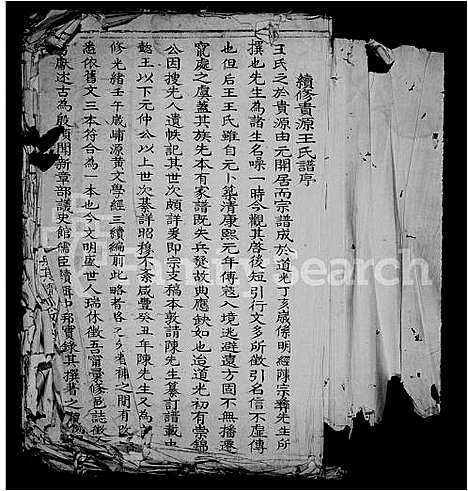 續修貴源王氏譜序
王氏之於貴源由元開居而宗譜成於道光丁亥歲係明經陳宗彝先生所
撰也先生為諸生名噪一時今觀其啓後短引行文多所徵引名信不虛傳
也但后王王氏雖自元卜築清康熙元年傳寇入境逃避遠方固不無播遷
竄處之虞蓋其族先本有家譜既失兵燹故典應缺如也迨道光初有崇錦
公因搜先人遺帙記其世次頗詳爰即宗支稿本敦請陳先生纂訂譜載由
懿王以下元仲公以上世次綦詳昭穆不紊咸豐癸丑年陳先生又為
修光緒壬午歲嵊源黃文學經三續編前此略者
補之間有改
悉依舊文三本符合為一本也今文明盛世人瑞休徵吾甯彙修邑誌徵
獻述古為殷頃聞新章部議史館儒臣
實錄其撰者
FamilySearch